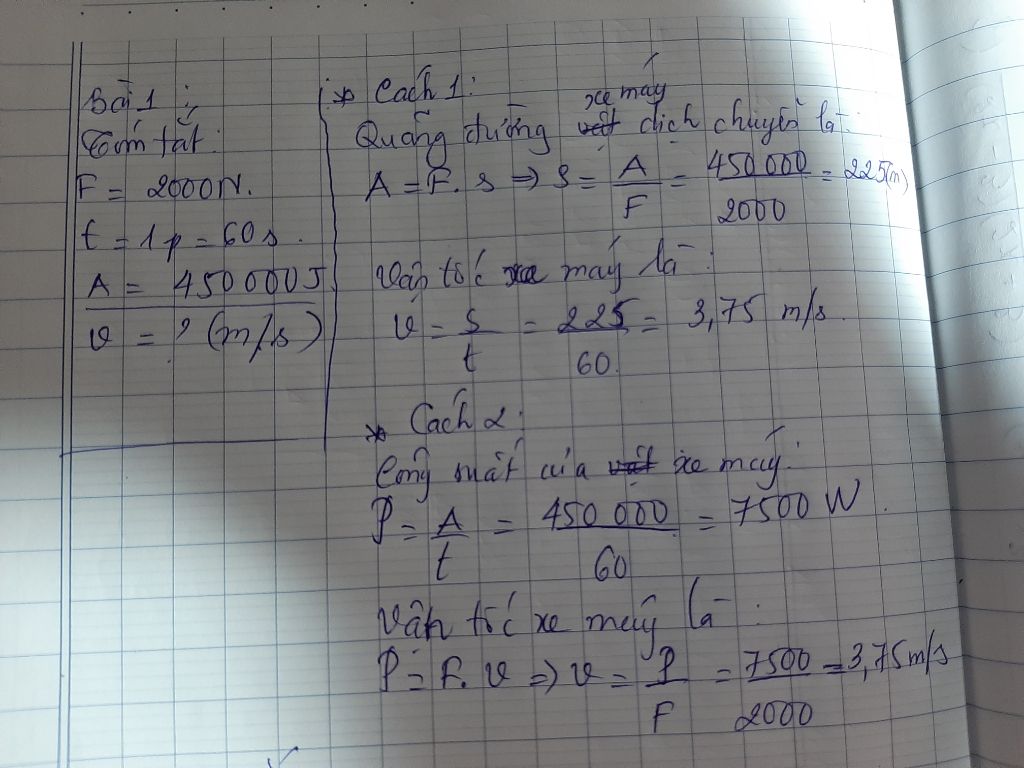 Bài 1 :
Tóm tắt:
F = 2000N.
t = 1p = 60s.
A = 450000J
v = ? (m/s)
* Cách 1:
xe máy
Quãng đường vật dịch chuyển là:
A = F. s => s = A/F = 450 000/2000 = 225(m)
Vận tốc xe máy là :
v = s/t = 225/60. = 3,75 m/s.
* Cách 2:
Công suất của vật xe máy:
P = A/t = 450 000/60 = 7500 W.
Vận tốc xe máy là :
P = F. v => v = P/F = 7500/2000 = 3,75 m/s